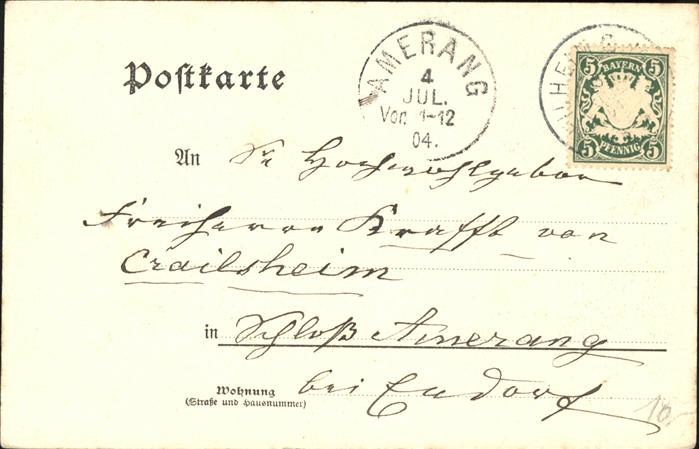 Postkarte
AMERANG
4
JUL.
Vor. 11-12
04.
5 BAYERN 5
5 PFENNIG 5
An Sr Hochwohlgeboren
Freiherrn Krafft von
Crailsheim
in Schloß Amerang
bei Endorf
Wohnung
(Straße und Hausnummer)
18